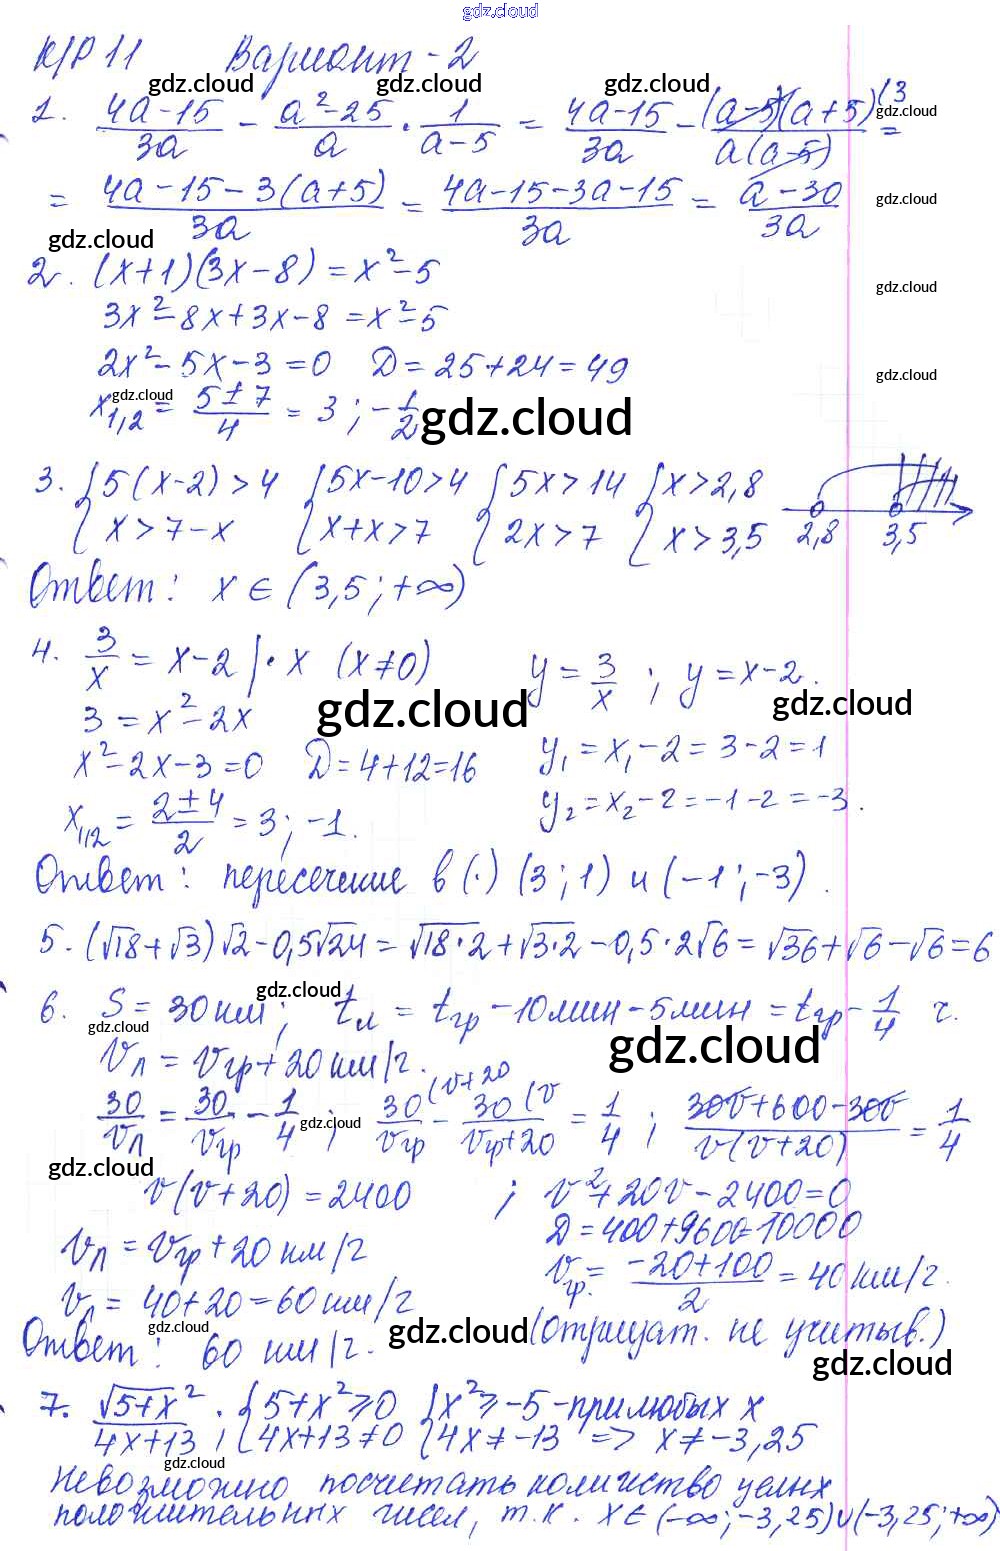 gdz.cloud
К/Р 11 Вариант - 2
gdz.cloud gdz.cloud gdz.cloud gdz.cloud
1. (4a-15)/(3a) - (a²-25)/a · 1/(a-5) = (4a-15)/(3a) - ((a-5)(a+5)^(3)/(a(a-5)) =
= (4a-15-3(a+5))/(3a) = (4a-15-3a-15)/(3a) = (a-30)/(3a)
gdz.cloud gdz.cloud
2. (x+1)(3x-8) = x²-5
gdz.cloud
3x²-8x+3x-8 = x²-5
2x²-5x-3=0 D = 25+24 = 49
gdz.cloud gdz.cloud
x₁,₂ = (5±7)/4 = 3 ; -1/2
gdz.cloud
3. {5(x-2)>4 {5x-10>4 {5x>14 {x>2,8
{x>7-x {x+x>7 {2x>7 {x>3,5 2,8 3,5
Ответ: x ∈ (3,5; +∞)
4. 3/x = x-2 |· x (x≠0) y = 3/x ; y = x-2.
gdz.cloud gdz.cloud
3 = x²-2x
x²-2x-3=0 D=4+12=16 y₁ = x₁-2 = 3-2 = 1
x₁,₂ = (2±4)/2 = 3; -1. y₂ = x₂-2 = -1-2 = -3.
Ответ: пересечение в (·) (3; 1) и (-1; -3).
5. (√18+√3)√2-0,5√24 = √18·2+√3·2-0,5·2√6 = √36+√6-√6=6
gdz.cloud
6. S = 30 км; tл = tгр - 10мин - 5мин = tгр - 1/4 ч.
gdz.cloud gdz.cloud
Vл = Vгр + 20 км/ч.
30/Vл = 30/Vгр - 1/4 ; 30/Vгр (v+20 - 30/(Vгр+20) (v = 1/4 ; (30v+600-30v)/(v(v+20)) = 1/4
gdz.cloud
gdz.cloud
v(v+20) = 2400 ; v²+20v-2400=0
D = 400+9600=10000
Vл = Vгр + 20 км/ч
Vгр. = (-20+100)/2 = 40 км/ч.
Vл = 40+20 = 60 км/ч
gdz.cloud gdz.cloud
Ответ: 60 км/ч. (отрицат. не учитыв.)
gdz.cloud
7. √5+x²/(4x+13) ; {5+x²≥0 {x²≥-5 - при любых x
{4x+13≠0 {4x≠-13 => x≠-3,25
gdz.cloud
Невозможно посчитать количество целых
положительных чисел, т.к. x∈(-∞;-3,25)∪(-3,25;+∞)